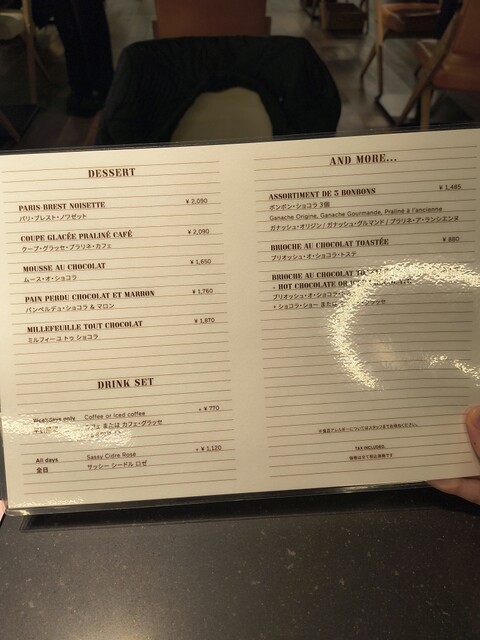 DESSERT
PARIS-BREST NOISETTE ¥ 2,090
パリ・ブレスト・ノワゼット
COUPE GLACÉE PRALINÉ CAFÉ ¥ 2,090
クープ・グラッセ・プラリネ・カフェ
MOUSSE AU CHOCOLAT ¥ 1,650
ムース・オ・ショコラ
PAIN PERDU CHOCOLAT ET MARRON ¥ 1,760
パンペルデュ・ショコラ & マロン
MILLEFEUILLE TOUT CHOCOLAT ¥ 1,870
ミルフィーユ トゥ ショコラ
DRINK SET
Weekdays only Coffee or Iced coffee + ¥ 770
平日限定 カフェ または カフェ・グラッセ
All days Sassy Cidre Rosé + ¥ 1,120
全日 サッシー シードル ロゼ
AND MORE...
ASSORTIMENT DE 3 BONBONS ¥ 1,485
ボンボン・ショコラ 3個
Ganache Origine, Ganache Gourmande, Praliné à l'ancienne
ガナッシュ・オリジン / ガナッシュ・グルマンド / プラリネ・ア・ランシエンヌ
BRIOCHE AU CHOCOLAT TOASTÉE ¥ 880
ブリオッシュ・オ・ショコラ・トステ
BRIOCHE AU CHOCOLAT
+ HOT CHOCOLATE OR
ブリオッシュ・オ・ショコラ
+ ショコラ・ショー または
※食品アレルギーについてはスタッフまでお尋ねください。
TAX INCLUDED.
価格は全て税込価格です